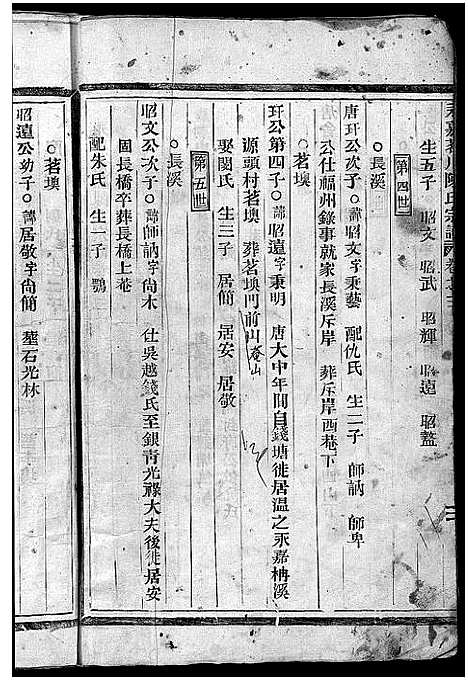 生五子 昭文 昭武 昭輝 昭遠 昭諡
第四世
○長溪
唐玕公次子○諱昭文字秉藝 配仇氏 生二子 師訥 師卑
公仕福州錄事就家長溪斥岸 葬斥岸西巷下
○茗墺
玕公第四子○諱昭遠字秉明 唐大中年間自錢塘徙居溫之永嘉枬溪
源頭村茗墺 葬茗墺門前山
娶閔氏 生三子 居簡 居安 居敬
第五世
○長溪
昭文公次子○諱師訥字尚木 仕吳越錢氏至銀靑光祿大夫後徙居安
固長橋卒葬長橋上菴
配朱氏 生一子 鶚
○茗墺
昭遠公幼子○諱居敬字尚簡 墓石光林